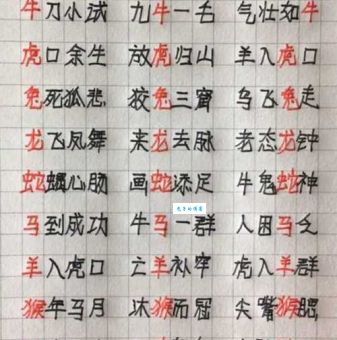 牛刀小试 九牛一毛 气壮如牛
虎口余生 放虎归山 羊入虎口
兔死狐悲 狡兔三窟 乌飞兔走
龙飞凤舞 来龙去脉 老态龙钟
蛇蝎心肠 画蛇添足 牛鬼蛇神
马到成功 牛马一群 人困马乏
羊入虎口 亡羊补牢 虎入羊群
猴年马月 沐猴而冠 尖嘴猴腮